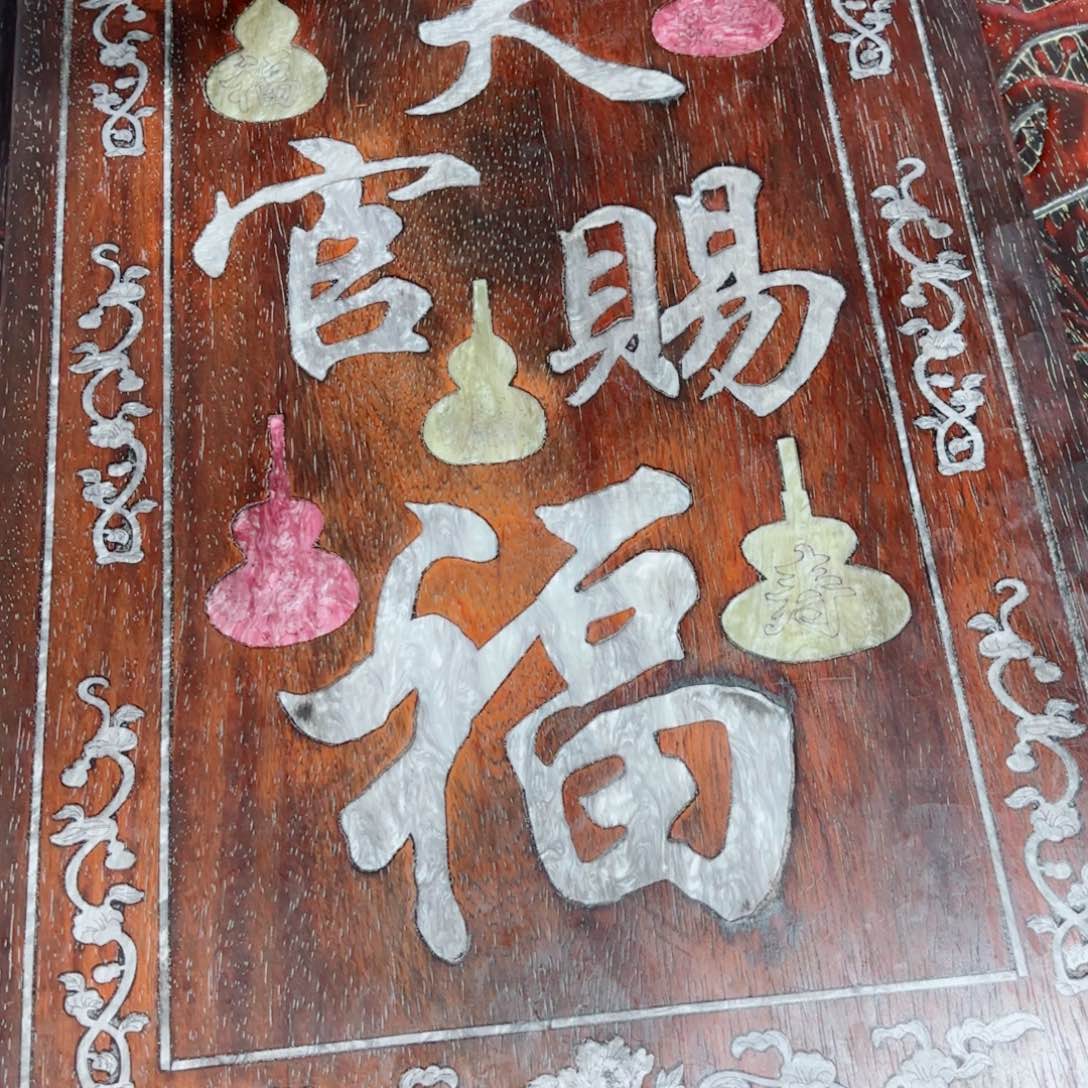 福
天
官賜
福
壽